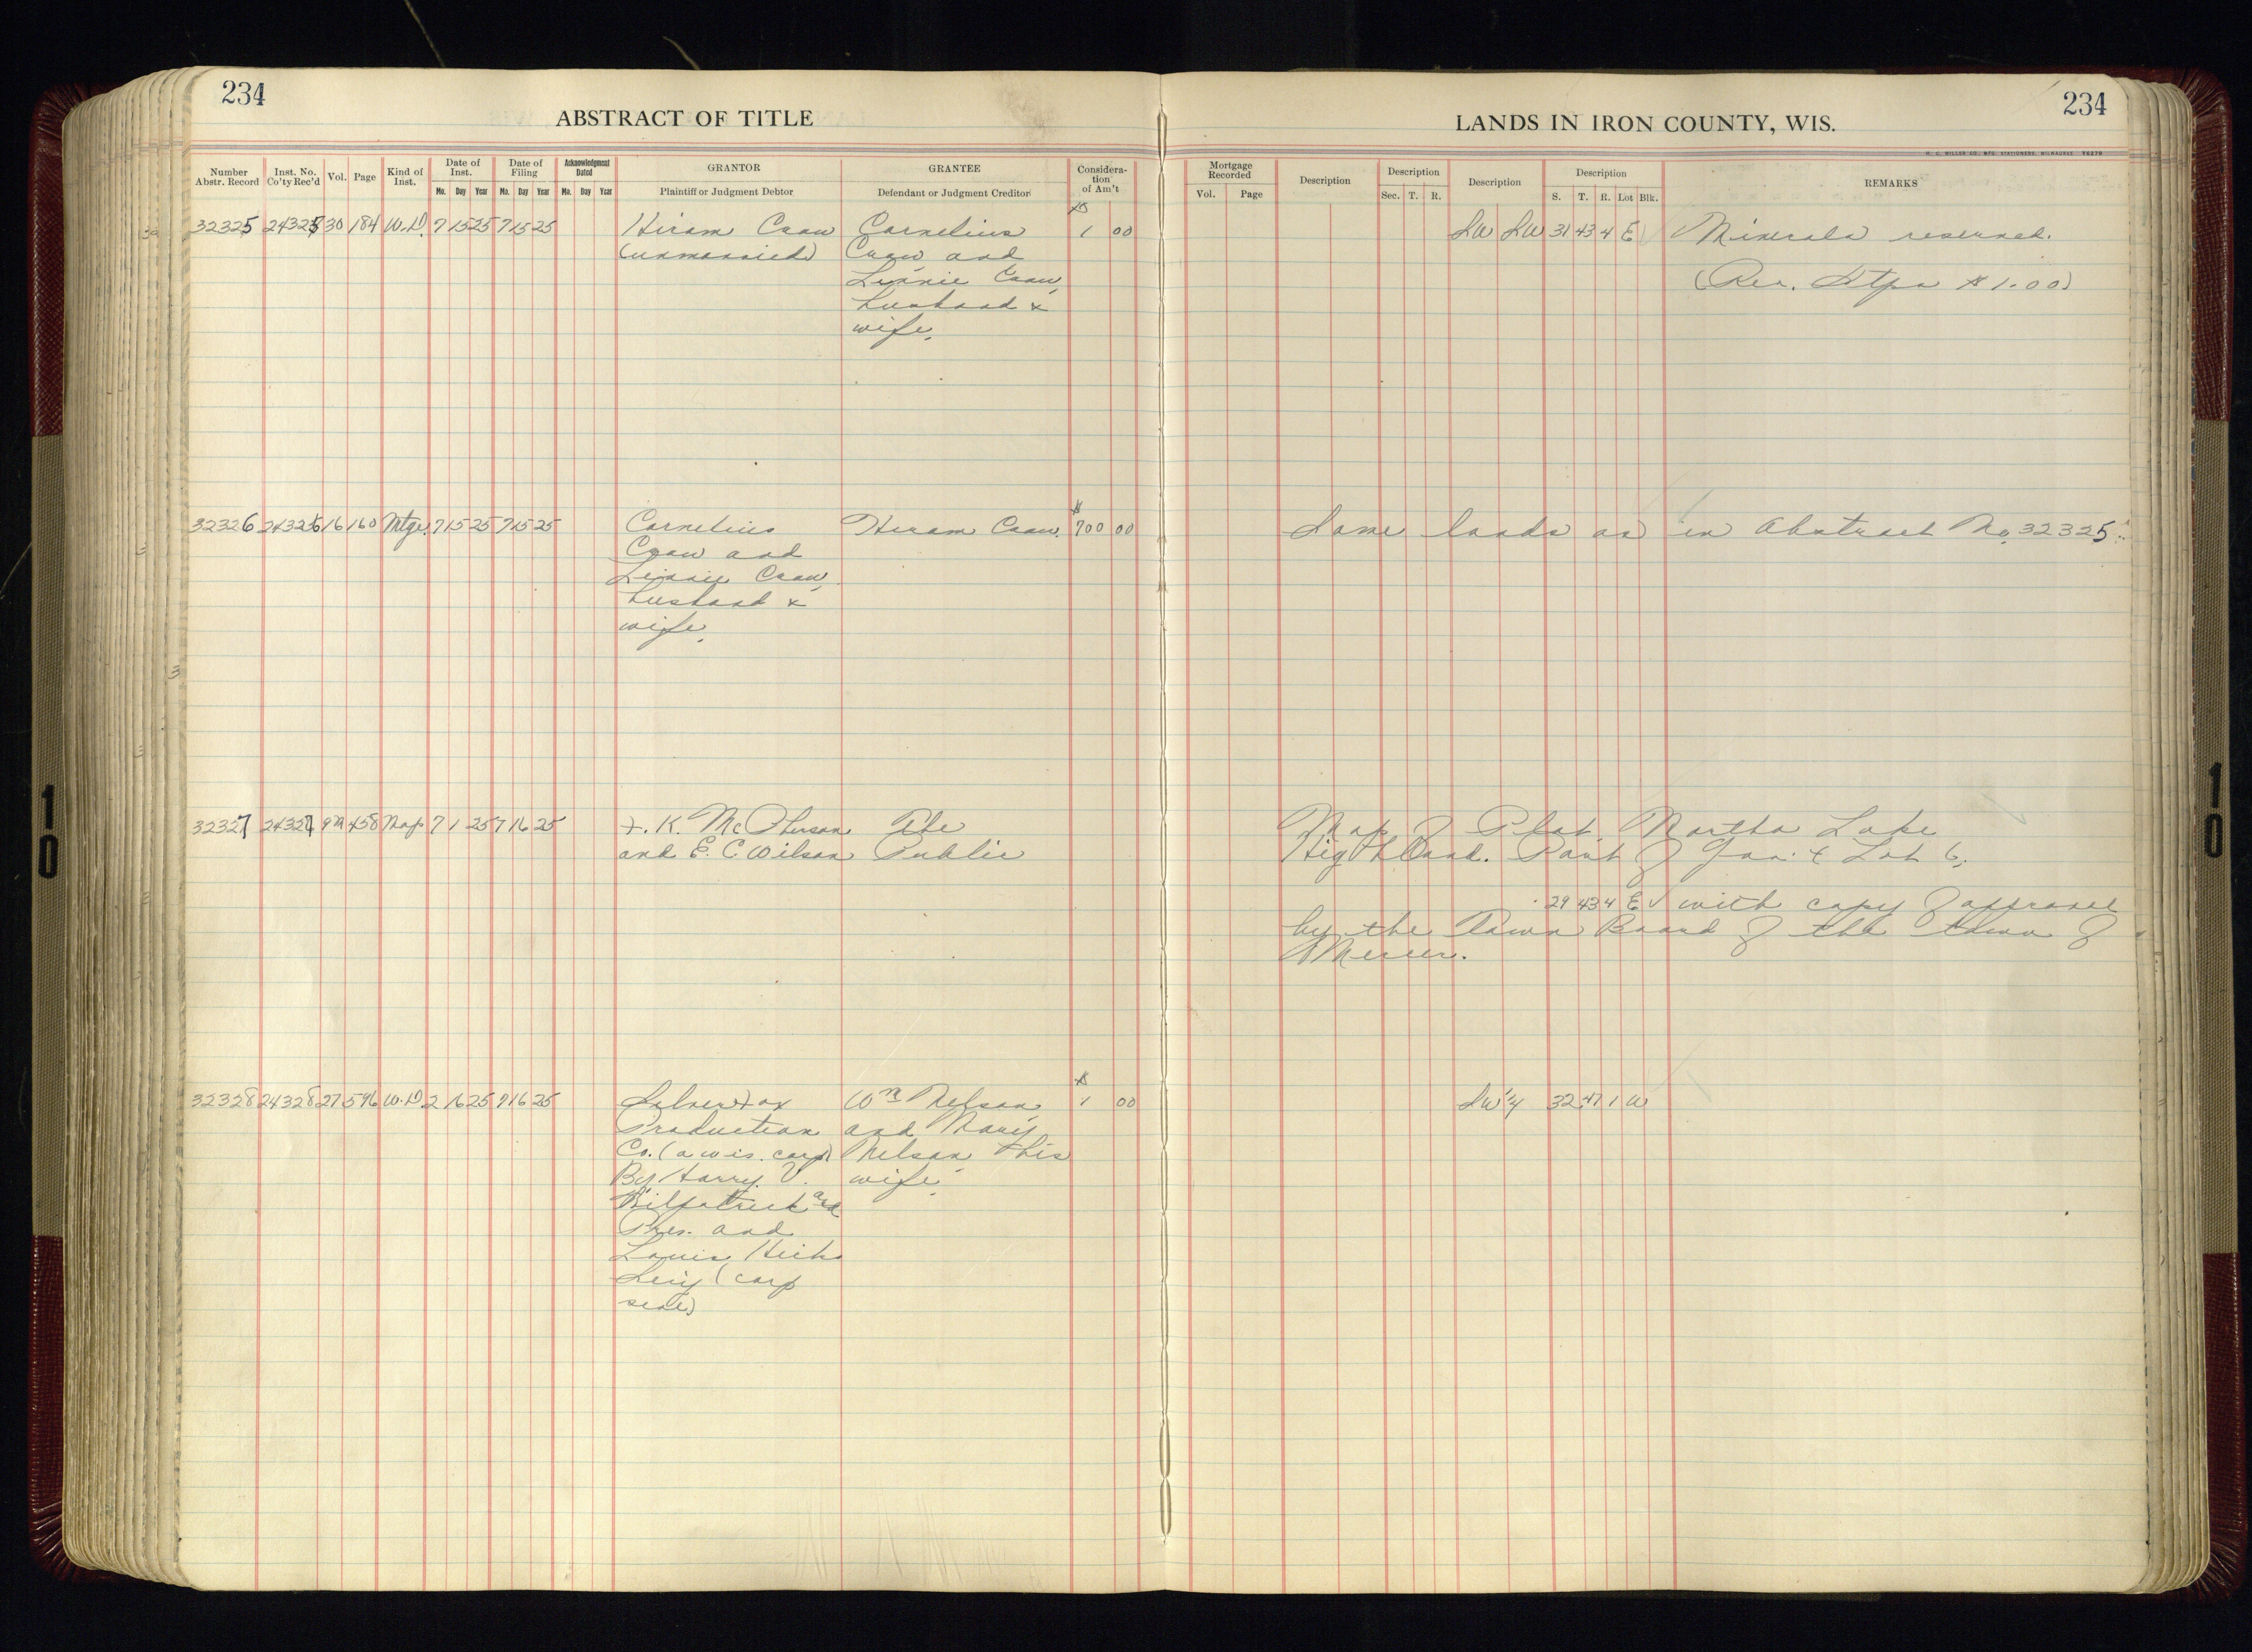 234
ABSTRACT OF TITLE
LANDS IN IRON COUNTY, WIS.
234
H. C. MILLER CO., MFG. STATIONERS, MILWAUKEE 76270
Number Abstr. Record
Inst. No. Co'ty Rec'd
Vol.
Page
Kind of Inst.
Date of Inst.
Mo. Day Year
Date of Filing
Mo. Day Year
Acknowledgment Dated
Mo. Day Year
GRANTOR
Plaintiff or Judgment Debtor
GRANTEE
Defendant or Judgment Creditor
Considera-
tion
of Am't
Mortgage Recorded
Vol. Page
Description
Description
Sec. T. R.
Description
Description
S. T. R. Lot Blk.
REMARKS
32325 24325 30 184 W.D. 7 15 25 7 15 25 Hiram Craw Cornelius $1 00 SW SW 31 43 4 E Minerals reserved.
(unmarried) Craw and
Linnie Craw, (Rev. Stps $1.00)
husband &
wife.
32326 24326 16 160 Mtge. 7 15 25 7 15 25 Cornelius Hiram Craw. $700 00 Same lands as in Abstract No. 32325.
Craw and
Linnie Craw,
husband &
wife.
32327 24327 9M 458 Map 7 1 25 7 16 25 F. K. McPherson The Map of Plat. Martha Lake
and E. C. Wilson Public Highland. Part of Gov't Lot 6,
29 43 4 E with copy of approval
by the Town Board of the town of
Mercer.
32328 24328 27 596 W.D. 2 16 25 7 16 25 Silver Fox Wm Nelson $1 00 SW 1/4 32 47 1 W
Production and Mary
Co. (a wis. corp) Nelson his
By Harry V. wife.
Kilpatrick as
Pres. and
Louis Hicks
Sec'y (corp
seal)
10
10